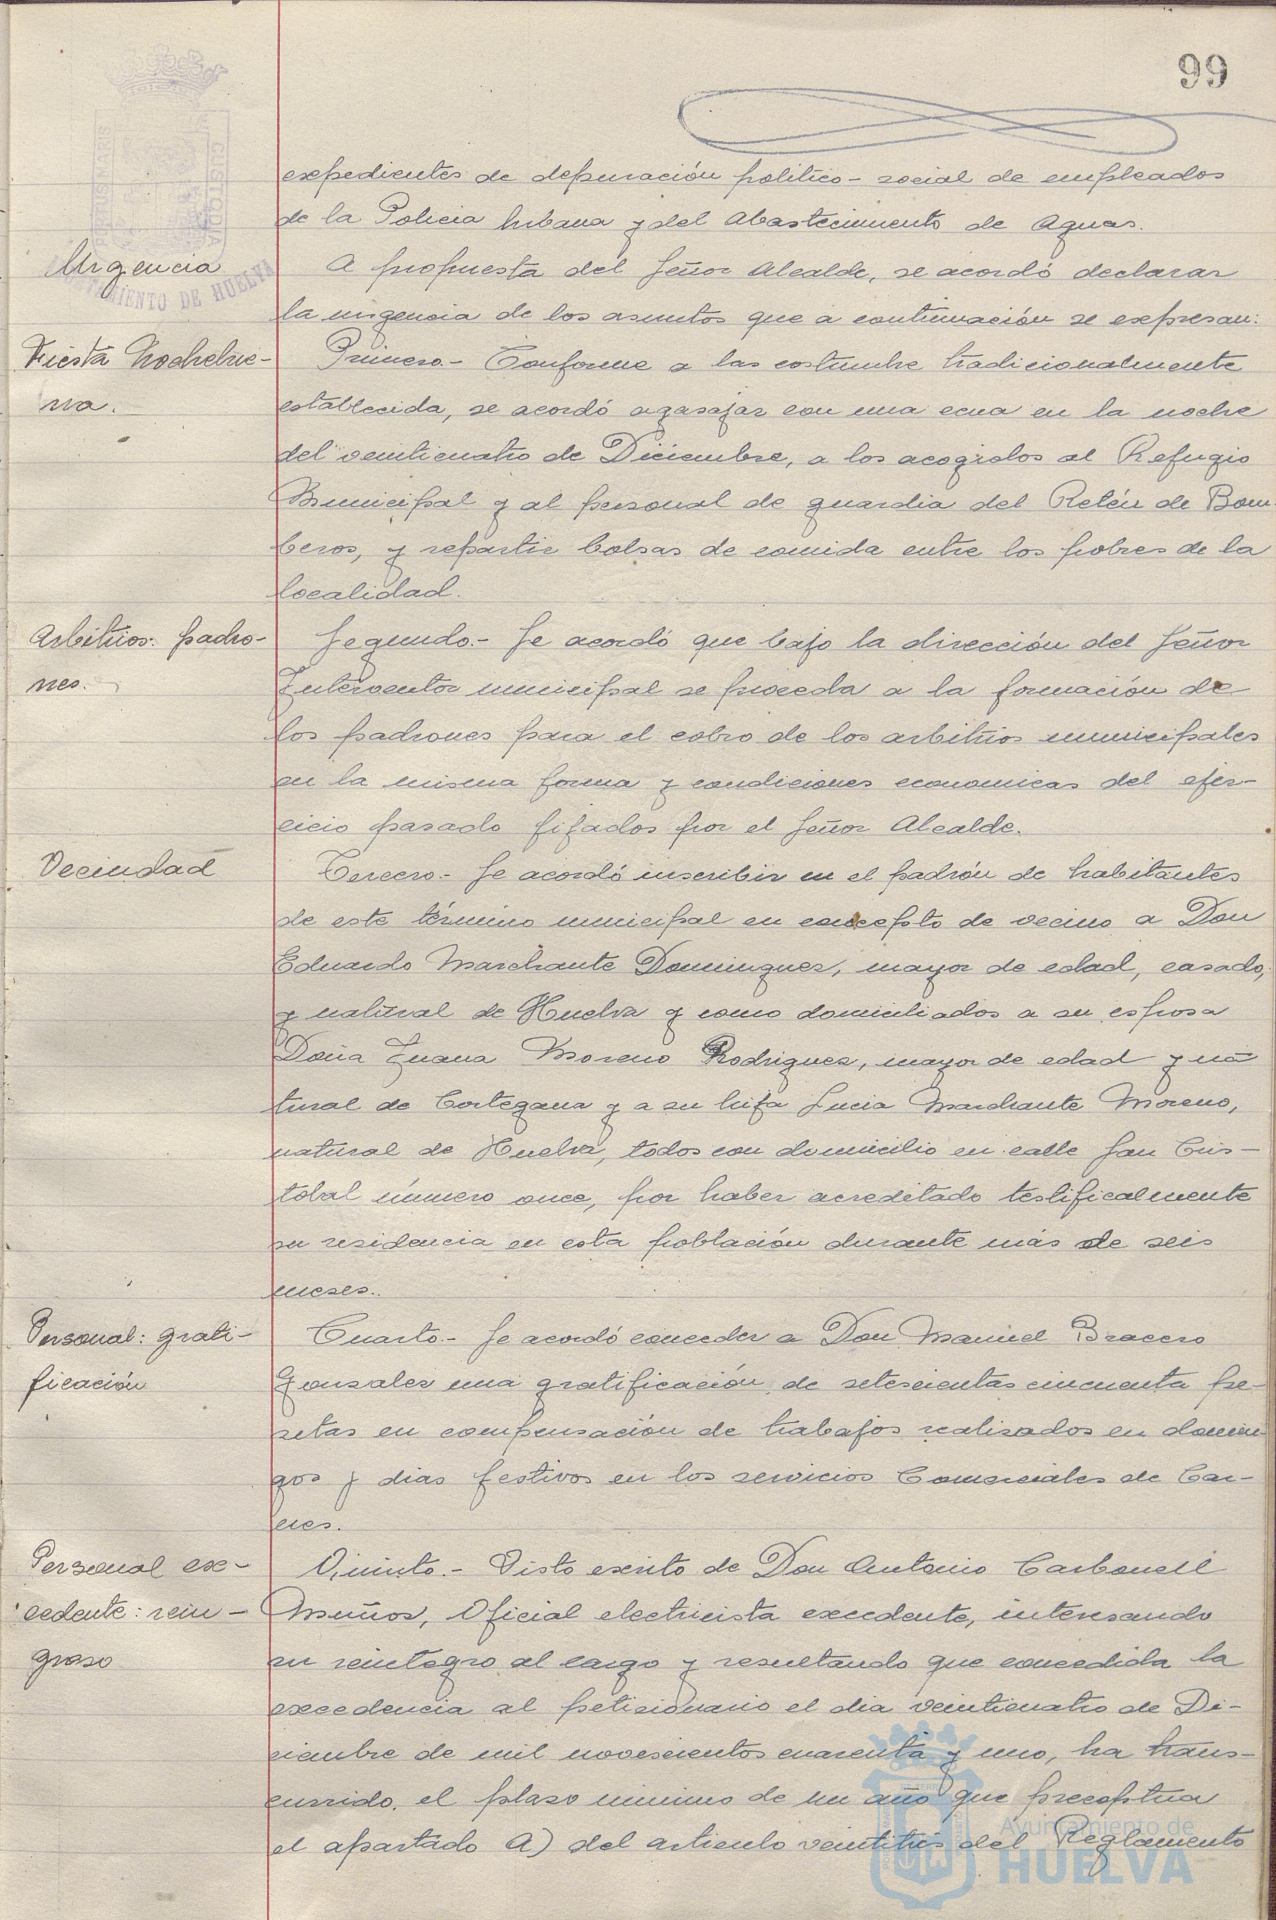 99
expedientes de depuración politico-social de empleados
de la Policia Urbana y del Abastecimiento de Aguas.
Urgencia
A propuesta del Señor Alcalde, se acordó declarar
la urgencia de los asuntos que a continuación se expresan:
Fiesta Nochebue-
na.
Primero.- Conforme a las costumbre tradicionalmente
establecida, se acordó agasajar con una cena en la noche
del veinticuatro de Diciembre, a los acogidos al Refugio
Municipal y al personal de guardia del Retén de Bom-
beros, y repartir bolsas de comida entre los pobres de la
localidad.
Arbitrios: padro-
nes.
Segundo.- Se acordó que bajo la dirección del Señor
Interventor municipal se proceda a la formación de
los padrones para el cobro de los arbitrios municipales
en la misma forma y condiciones economicas del ejer-
cicio pasado fijados por el Señor Alcalde.
Vecindad
Tercero.- Se acordó inscribir en el padrón de habitantes
de este término municipal en concepto de vecino a Don
Eduardo Marchante Dominguez, mayor de edad, casado,
y natural de Huelva y como domiciliados a su esposa
Doña Juana Moreno Rodriguez, mayor de edad y na
tural de Cortegana y a su hija Lucia Marchante Moreno,
natural de Huelva, todos con domicilio en calle San Cris-
tobal número once, por haber acreditado testificalmente
su residencia en esta población durante más de seis
meses.
Personal: grati-
ficación
Cuarto.- Se acordó conceder a Don Manuel Bracero
Gonzalez una gratificación de setescientas cincuenta pe-
setas en compensación de trabajos realizados en domin-
gos y dias festivos en los servicios Comerciales de Car-
nes.
Personal ex-
cedente: rein-
greso
Quinto.- Visto escrito de Don Antonio Carbonell
Muñoz, Oficial electricista excedente, interesando
su reintegro al cargo y resultando que concedida la
excedencia al peticionario el dia veinticuatro de Di-
ciembre de mil novescientos cuarenta y uno, ha trans-
currido el plazo minimo de un año que preceptua
el apartado A) del articulo veintitrés del Reglamento
PORTUS MARIS
CUSTODIA
AYUNTAMIENTO DE HUELVA
Ayuntamiento de
HUELVA